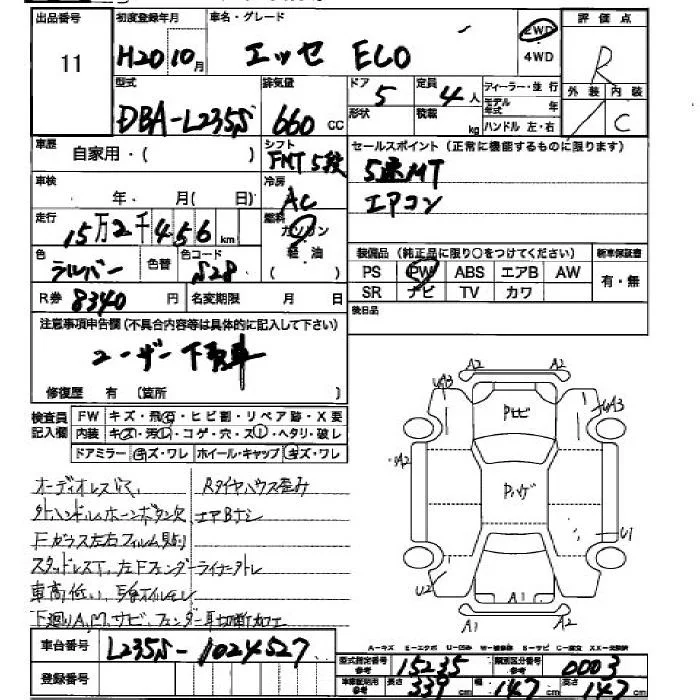 出品番号 11
初度登録年月 H20 10月
車名・グレード エッセ ECO
2WD
4WD
評価点 R
外装 内装 C
型式 DBA-L235S
排気量 660 cc
ドア 5
形状
定員 4人
積載 kg
ディーラー・並行
モデル年式 年
ハンドル 左・右
車歴 自家用・( )
シフト FMT 5段
セールスポイント (正常に機能するものに限ります)
5速MT
エアコン
車検 年 月( 日)
冷房 AC
走行 15万2千456 km
燃料 ガソリン
軽油
( )
色 シルバー
色替
色コード S28
装備品 (純正品に限り○をつけてください)
PS PW ABS エアB AW
SR ナビ TV カワ
新車保証書
有・無
R券 8340 円
名変期限 月 日
後日品
注意事項申告欄 (不具合内容等は具体的に記入して下さい)
ユーザー下取車
修復歴 有 〔箇所 〕
検査員記入欄
FW キズ・飛石・ヒビ割・リペア跡・X要
内装 キズ・汚レ・コゲ・穴・スレ・ヘタリ・破レ
ドアミラー キズ・ワレ ホイール・キャップ キズ・ワレ
Rタイヤハウス歪み
エアBナシ
Fガラス左右フィルム貼り
車高低い
車台番号 L235S-1024527
登録番号
A2 A2
UA3 UA3
Pサビ
A2
Pハゲ
U1
U2
A1
A1 A1
型式指定番号 参考 15235
類別区分番号 参考 0003
長さ 339 cm 幅 147 cm 高さ 147 cm